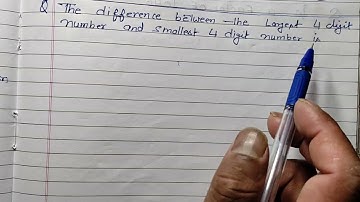 Q The difference between the Largest 4 digit
number and smallest 4 digit number is